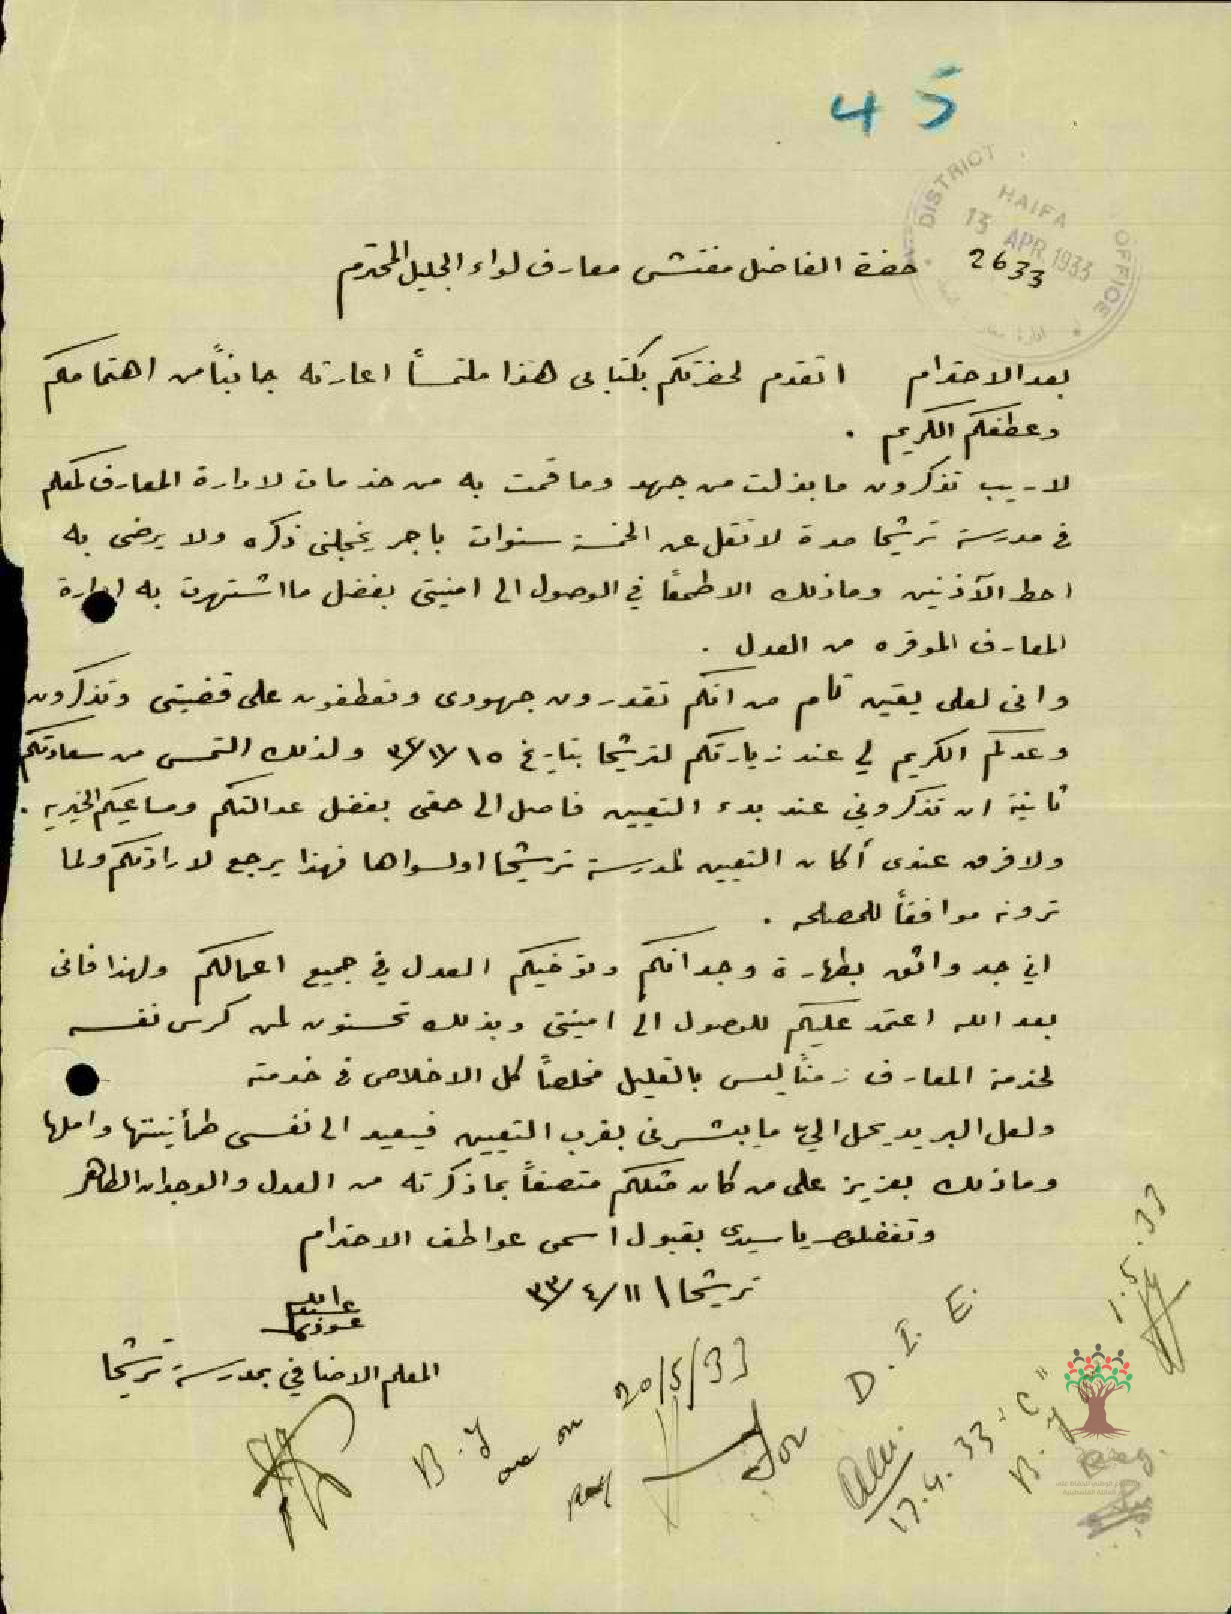 45
DISTRICT OFFICE
HAIFA
13 APR 1933
2633
حضرة الفاضل مفتش معارف لواء الجليل المحترم
بعد الاحترام اتقدم لحضرتكم بكتابي هذا ملتمساً اعارته جانباً من اهتمامكم
وعطفكم الكريم .
لا ريب تذكرون ما بذلت من جهد وما قمت به من خدمات لادارة المعارف كمعلم
في مدرسة ترشيحا مدة لا تقل عن الخمسة سنوات باجر يخجلني ذكره ولا يرضى به
احط الآذنين وما ذلك الا طمعاً في الوصول الى امنيتي بفضل ما اشتهرت به ادارة
المعارف الموقره من العدل .
واني لعلى يقين تام من انكم تقدرون جهودي وتعطفون على قضيتي وتذكرون
وعدكم الكريم لي عند زيارتكم لترشيحا بتاريخ ١٥ ولذلك التمس من سعادتكم
ثانية ان تذكروني عند بدء التعيين فاصل الى حقي بفضل عدالتكم ومساعيكم الخيريه .
ولا فرق عندي أكان التعيين لمدرسة ترشيحا او لسواها فهذا يرجع لارادتكم ولما
ترونه موافقاً للمصلحه .
اني جد واثق بطهارة وجدانكم وتوخيكم العدل في جميع اعمالكم ولهذا فاني
بعد الله اعتمد عليكم للوصول الى امنيتي وبذلك تحسنون لمن كرس نفسه
لخدمة المعارف زمناً ليس بالقليل مخلصاً كل الاخلاص في خدمته
ولعل البريد يحمل اليّ ما يبشرني بقرب التعيين فيعيد الى نفسي طمأنينتها واملها
وما ذلك بعزيز على من كان مثلكم متصفاً بما ذكرته من العدل والوجدان الطاهر
وتفضلوا يا سيدي بقبول اسمى عواطف الاحترام
ترشيحا \ ١١/٤/٣٣
عبدالله
المعلم الاضافي بمدرسة ترشيحا
B.Y on 20/5/33
for D.I.E.
17.4.33
B.Y 1.5.33